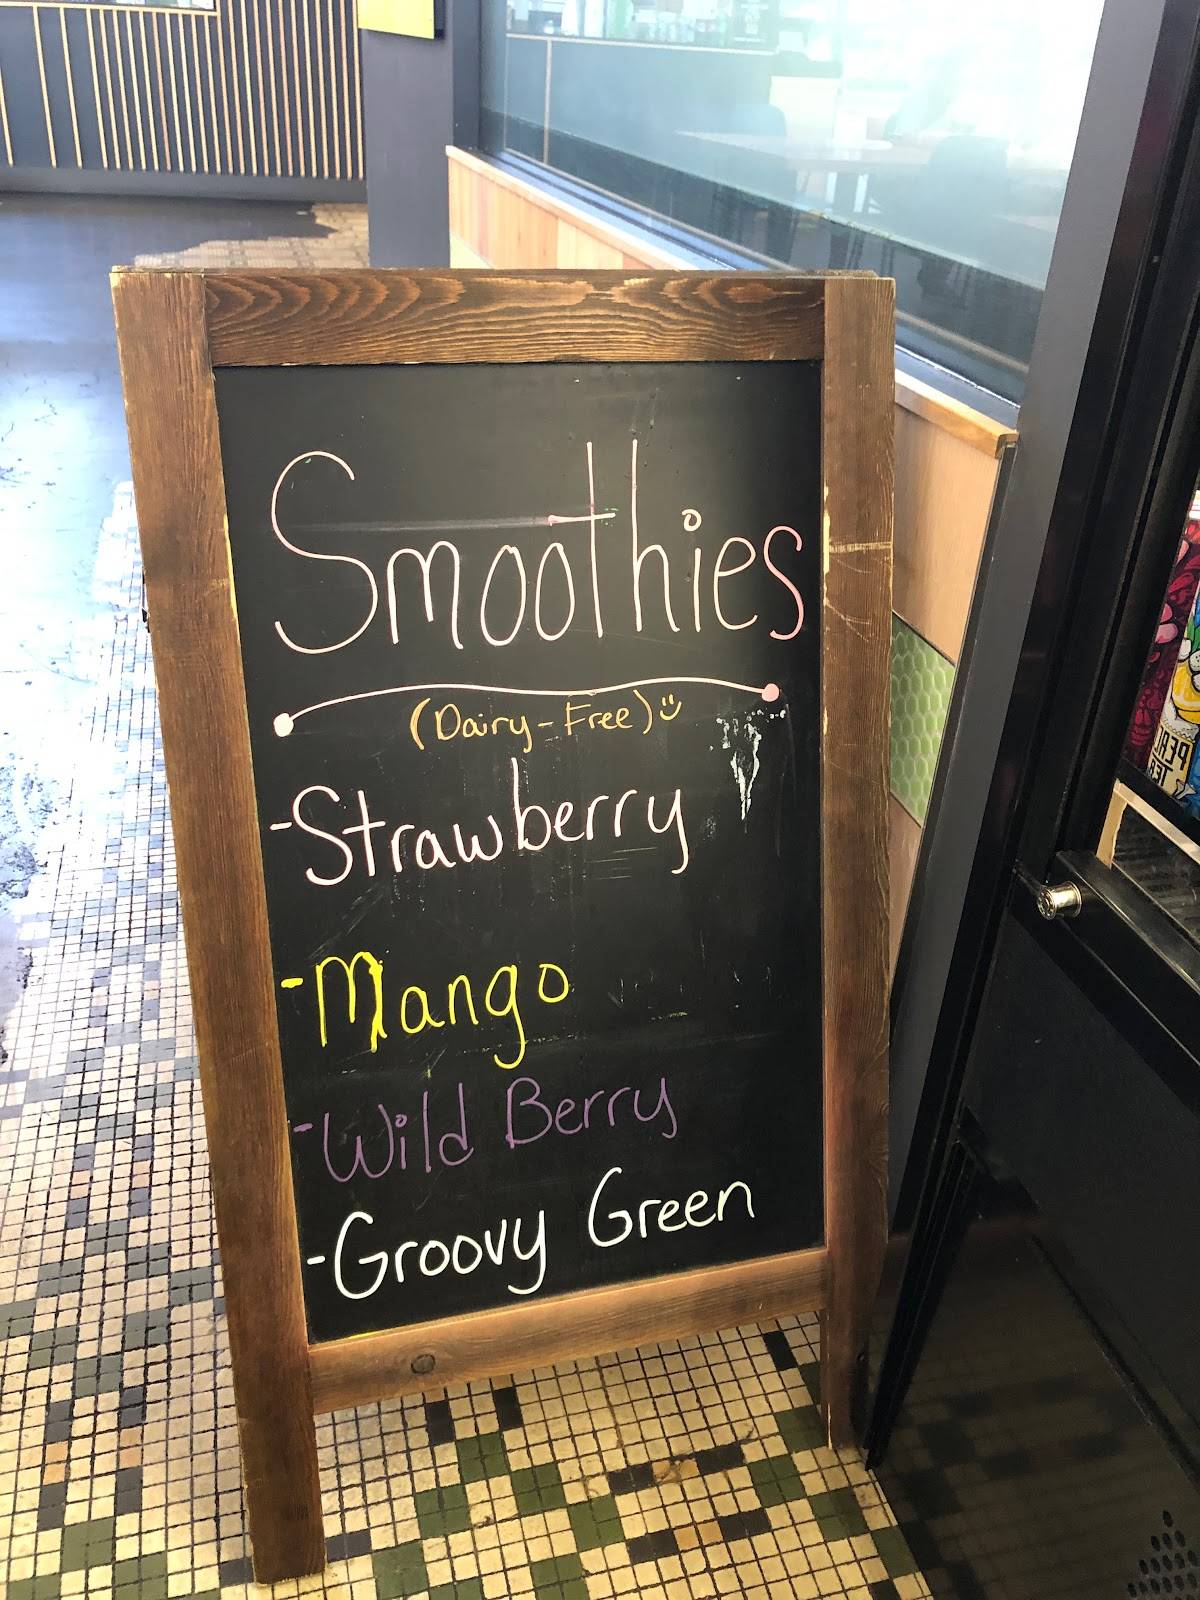 Smoothies
(Dairy-Free)
-Strawberry
-Mango
-Wild Berry
-Groovy Green